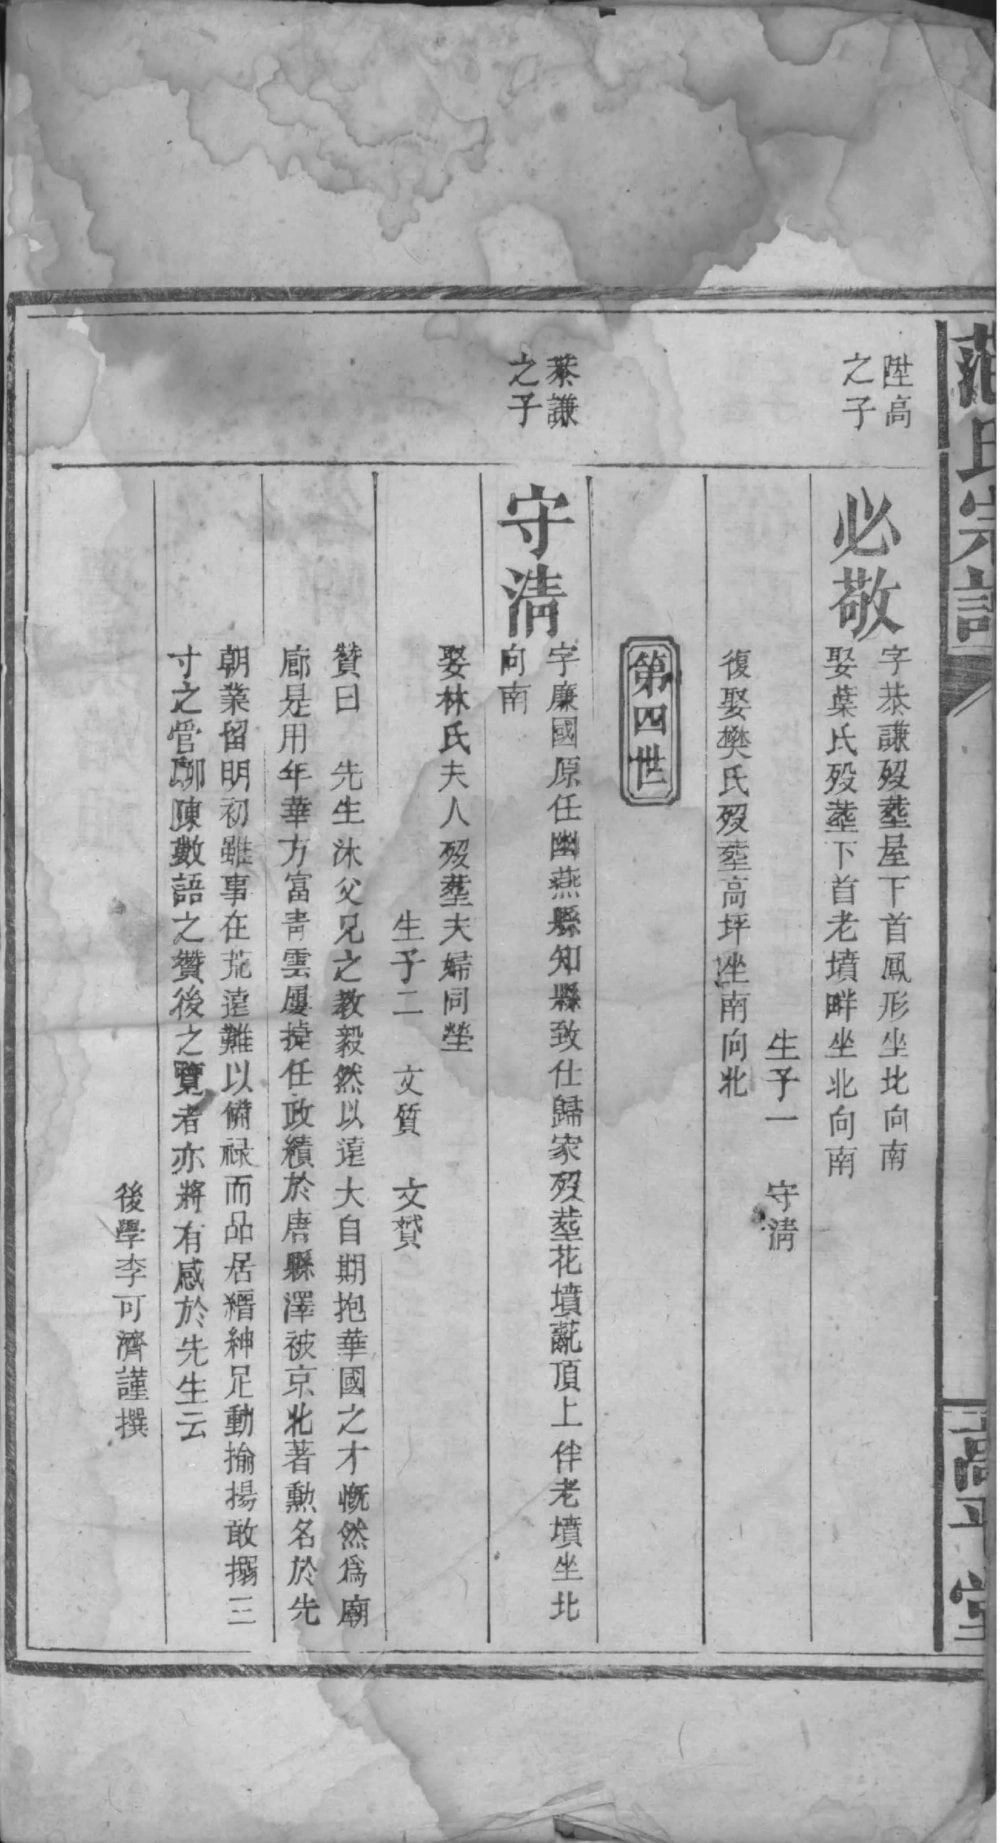 范氏宗譜
高平堂
陞高
之子
必敬
字恭謙歿塟屋下首鳳形坐北向南
娶葉氏歿塟下首老墳畔坐北向南
生子一 守清
復娶樊氏歿塟高坪坐南向北
第四世
恭謙
之子
守清
字廉國原任幽燕縣知縣致仕歸家歿塟花墳薍頂上伴老墳坐北
向南
娶林氏夫人歿塟夫婦同塋
生子二 文質 文贇
贊曰 先生沐父兄之教毅然以遠大自期抱華國之才慨然為廟
廊是用年華方富青雲屢擡任政績於唐縣澤被京北著勳名於先
朝業留明初雖事在荒遠難以備祿而品居縉紳足動揄揚敢搦三
寸之管聊陳數語之贊後之覽者亦將有感於先生云
後學李可濟謹撰